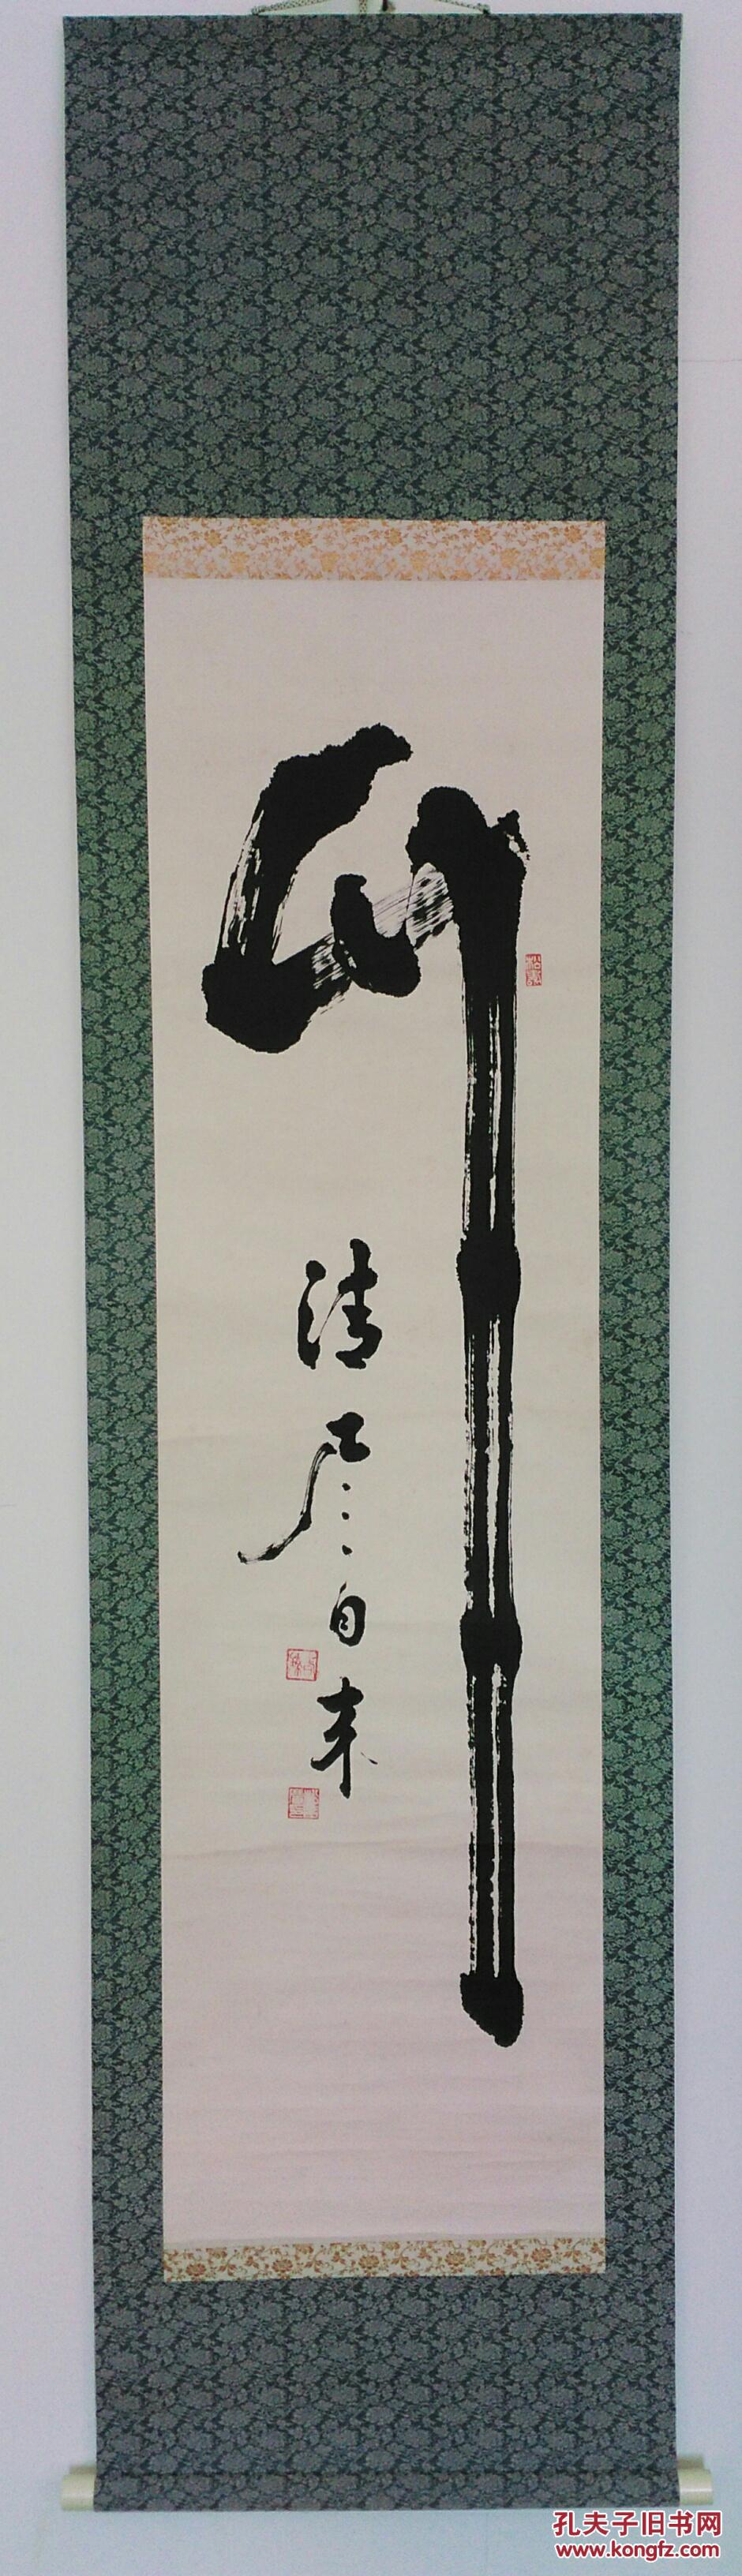 竹
清風自来
孔夫子旧书网
www.kongfz.com